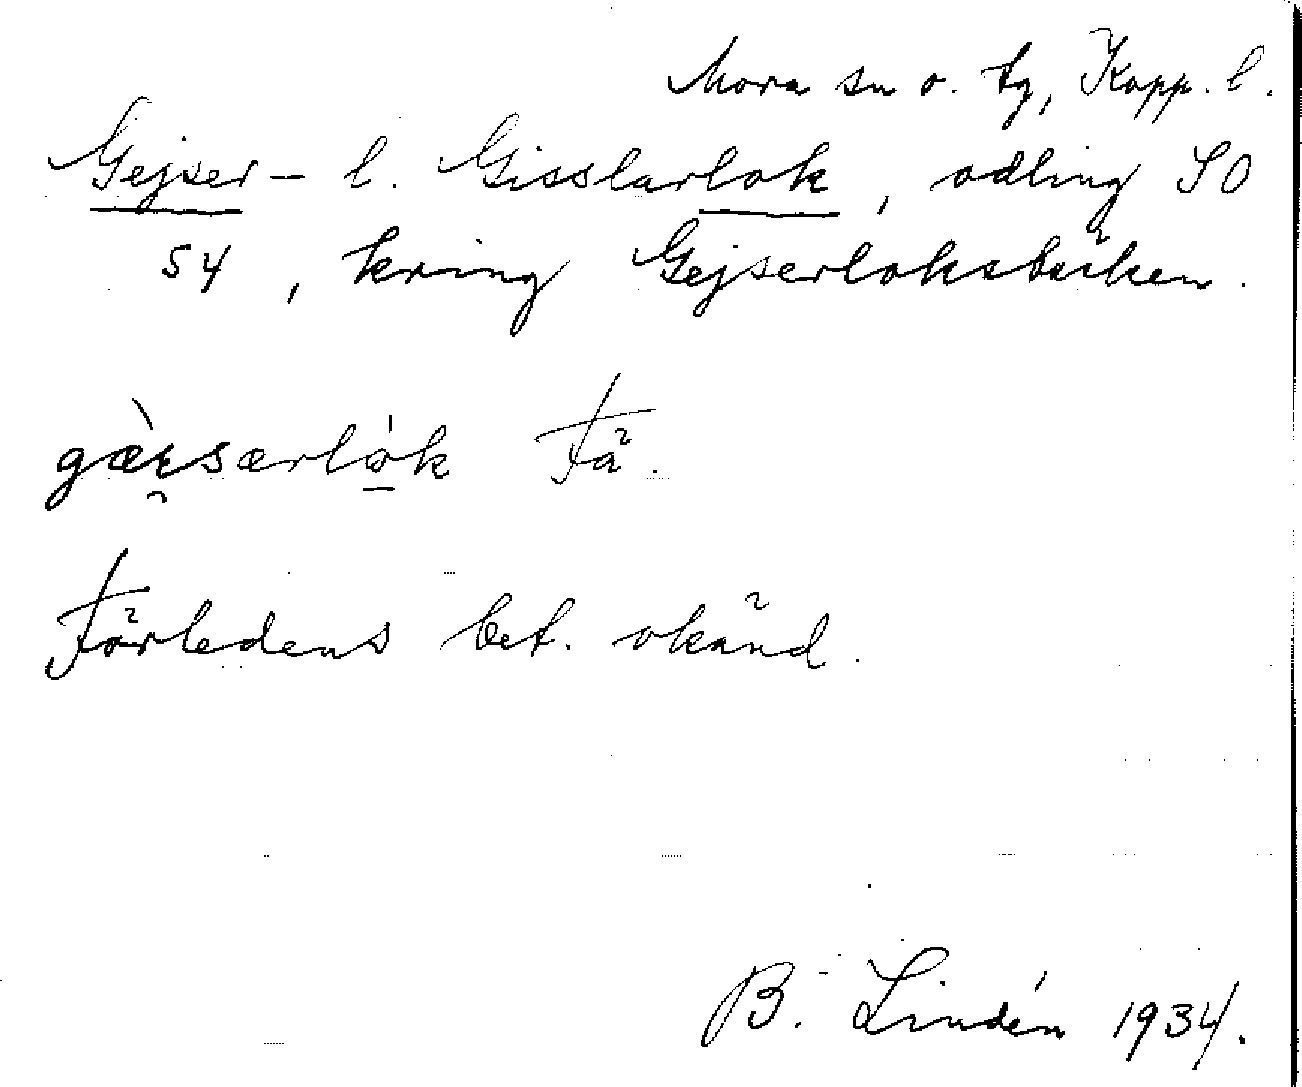 Mora sn o. tg, Kopp. l.
Gejser- l. Gisslarlok, odling SO
54, kring Gejserloksbäcken.
gæ̀ɪ̯særlo̲k Fä.
Förledens bet. okänd.
B. Lindén 1934.